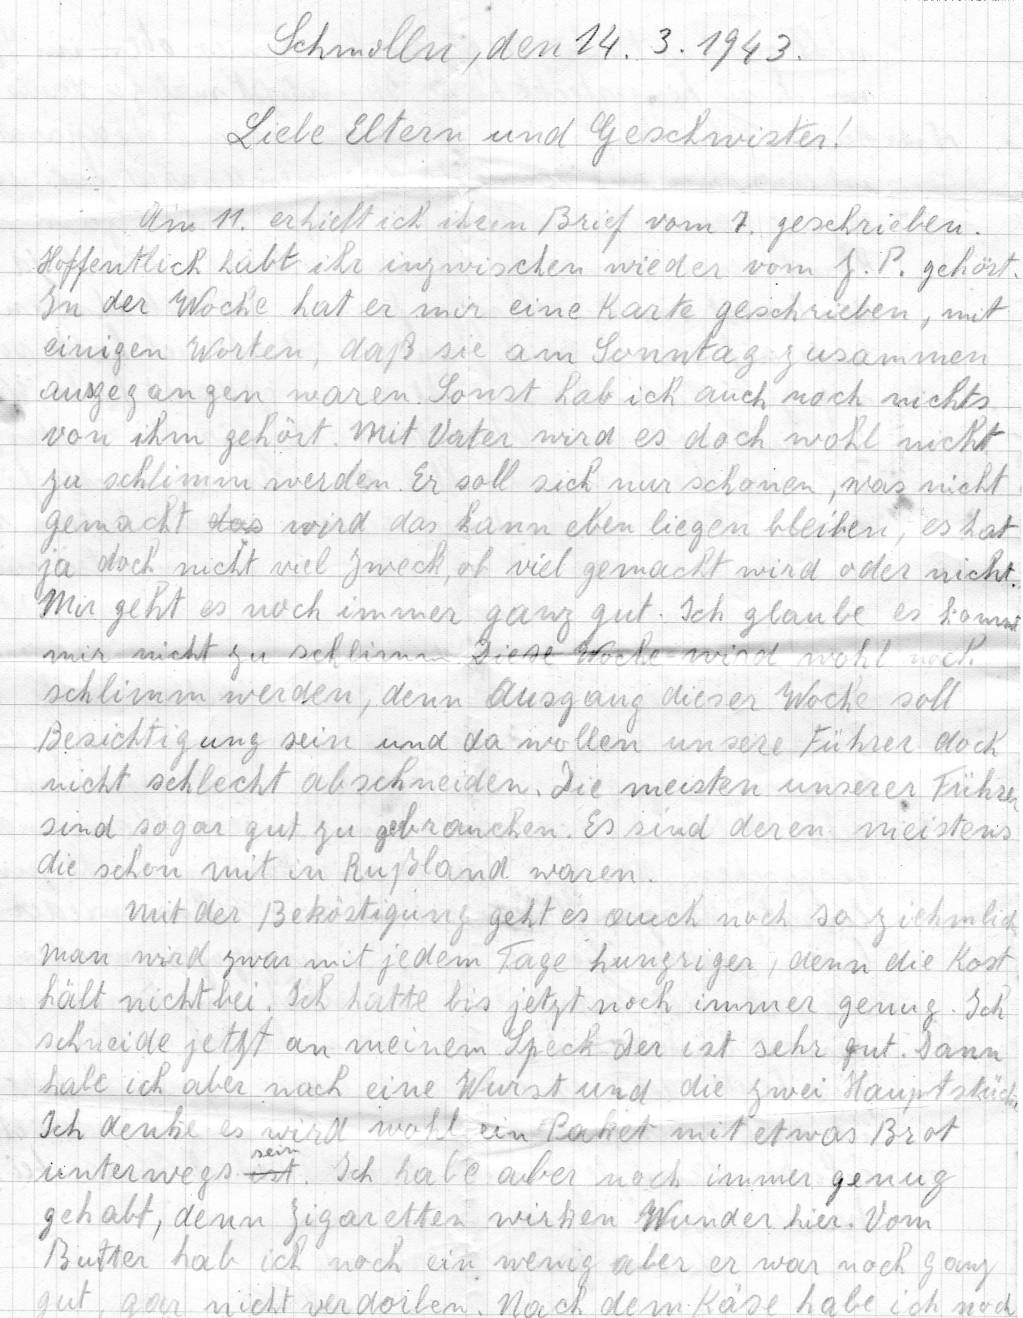 Schmölln, den 14. 3. 1943.
Liebe Eltern und Geschwister!
Am 11. erhielt ich ihren Brief vom 7. geschrieben.
Hoffentlich habt ihr inzwischen wieder vom J. P. gehört.
In der Woche hat er mir eine Karte geschrieben, mit
einigen Worten, daß sie am Sonntag zusammen
ausgegangen waren. Sonst hab ich auch noch nichts
von ihm gehört. Mit Vater wird es doch wohl nicht
zu schlimm werden. Er soll sich nur schonen, was nicht
gemacht das wird das kann eben liegen bleiben, es hat
ja doch nicht viel Zweck, ob viel gemacht wird oder nicht.
Mir geht es noch immer ganz gut. Ich glaube es kommt
mir nicht zu schlimm. Diese Woche wird wohl noch
schlimm werden, denn Ausgang dieser Woche soll
Besichtigung sein und da wollen unsere Führer doch
nicht schlecht abschneiden. Die meisten unserer Führer
sind sogar gut zu gebrauchen. Es sind deren meistens
die schon mit in Rußland waren.
Mit der Beköstigung geht es auch noch so ziehmlich
man wird zwar mit jedem Tage hungriger, denn die Kost
hält nicht bei. Ich hatte bis jetzt noch immer genug. Ich
schneide jetzt an meinem Speck der ist sehr gut. Dann
habe ich aber noch eine Wurst und die zwei Hauptstück.
Ich denke es wird wohl ein Paket mit etwas Brot
unterwegs ist sein. Ich habe aber noch immer genug
gehabt, denn Zigaretten wirken Wunder hier. Vom
Butter hab ich noch ein wenig aber er war noch ganz
gut, gar nicht verdorben. Nach dem Käse habe ich noch